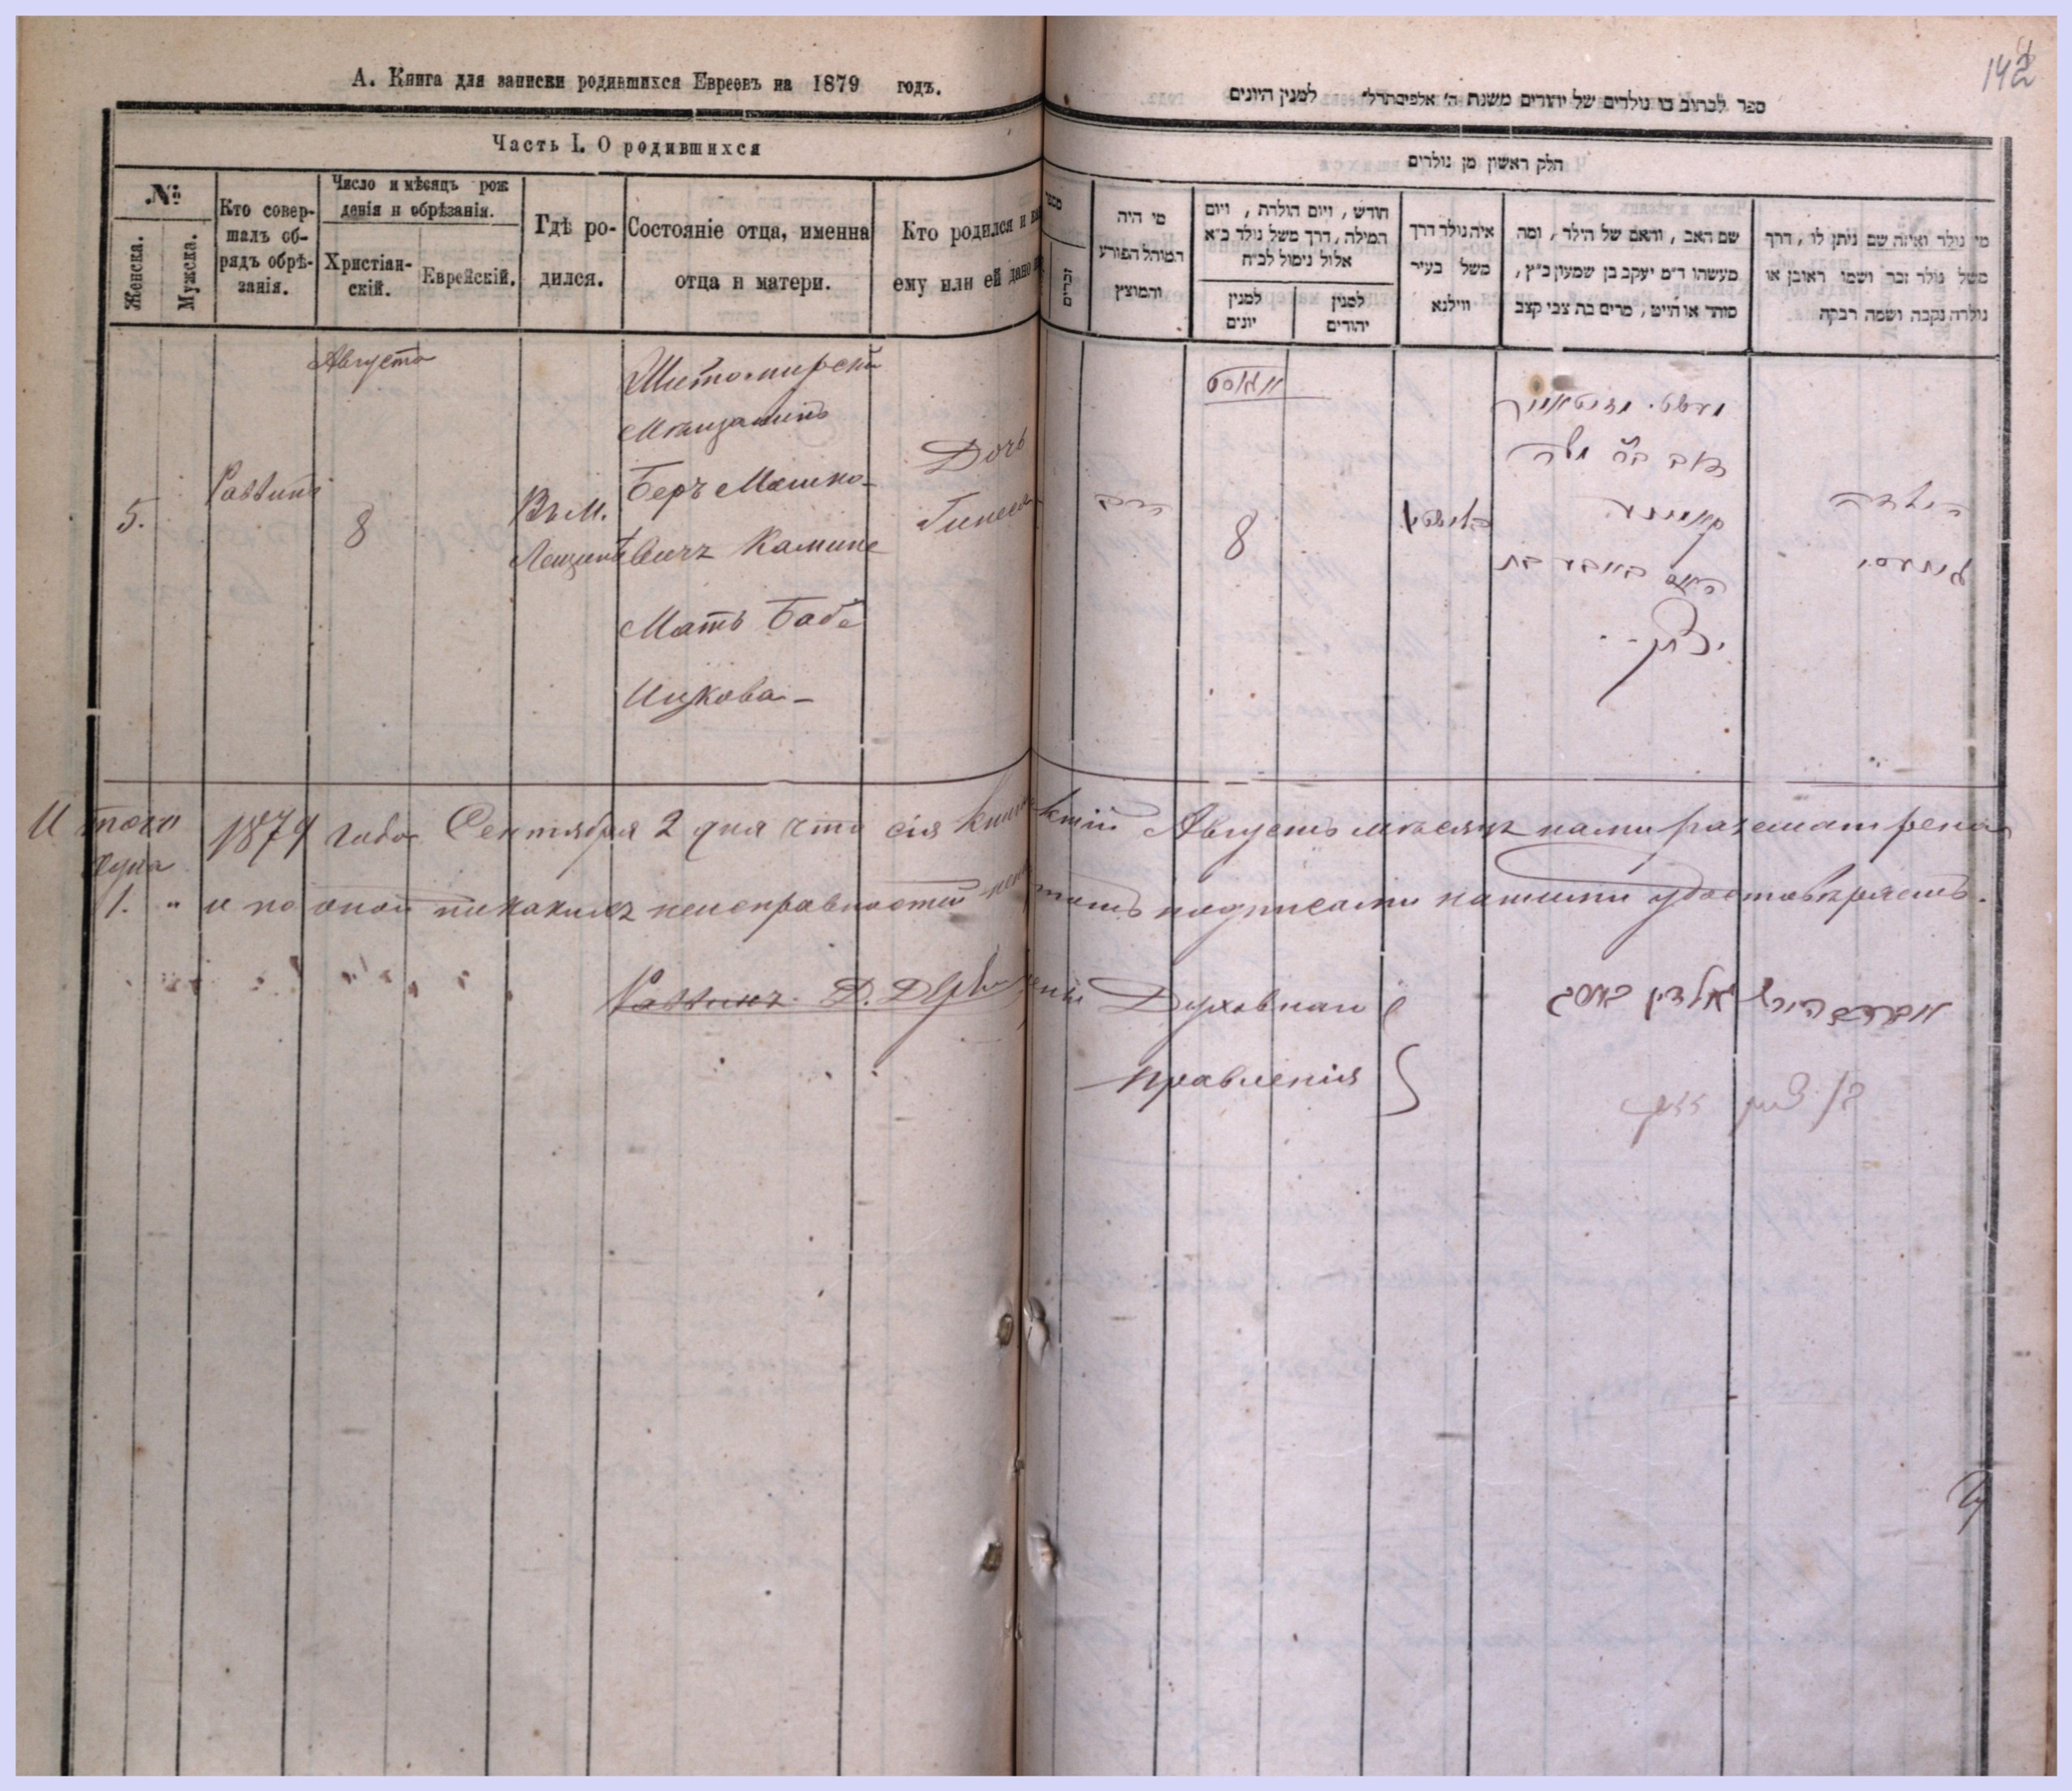 142
А. Книга для записки родившихся Евреевъ на 1879 годъ.
Часть I. О родившихся
№
Женска.
Мужска.
Кто совер-
шалъ об-
рядъ обрѣ-
занія.
Число и мѣсяцъ рож
денія и обрѣзанія.
Христіан-
скій.
Еврейскій.
Гдѣ ро-
дился.
Состояніе отца, имена
отца и матери.
Кто родился и
ему или ей дано
Августа
5.
Раввинъ
8
Въ м.
Житомирскій
Мѣщанинъ
Беръ Мошко-
вичъ Камине
Мать Баба
Ицкова
Дочь
Гинеся
ספר לכתוב בו נולדים של יהודים משנת ה' אלפים למנין היונים
חלק ראשון מן נולדים
זכרים
מי היה
המוהל הפורע
והמוצץ
חודש, ויום הולדת, ויום
המילה, דרך משל נולד כ״א
אלול נימול לכ״ח
למנין
יונים
למנין
יהודים
איה נולד דרך
משל בעיר
ווילנא
שם האב, והאם של הילד, ומה
מעשהו ד״מ יעקב בן שמעון כ״ץ,
סוחר או חייט, מרים בת צבי קצב
מי נולד ואיזה שם ניתן לו, דרך
משל נולד זכר ושמו ראובן או
נולדה נקבה ושמה רבקה
אווגוסט
8
הרב
דוב בר משה
האם באבע בת
יצחק
הילדה
גינעסי
Итого
Душа
1. "
1879 года Сентября 2 дня что сія книга Августъ мѣсяцъ нами разсматрена
и по оной никакихъ неисправностей подписами нашими удостовѣряемъ.
Раввинъ Д.
Духовнаго
Правленія